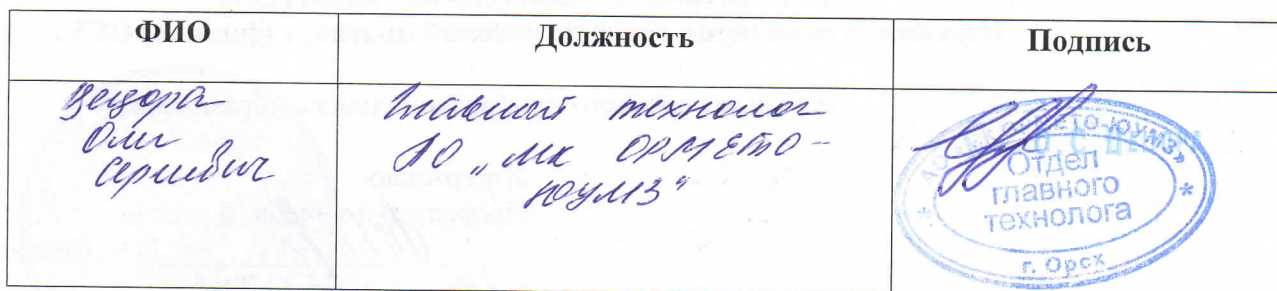 ФИО
Должность
Подпись
Цецора
Олег
Сергеевич
Главный технолог
АО „МК ОРМЕТО-
ЮУМЗ“
АО "МК ОРМЕТО-ЮУМЗ"
Отдел
главного
технолога
г. Орск